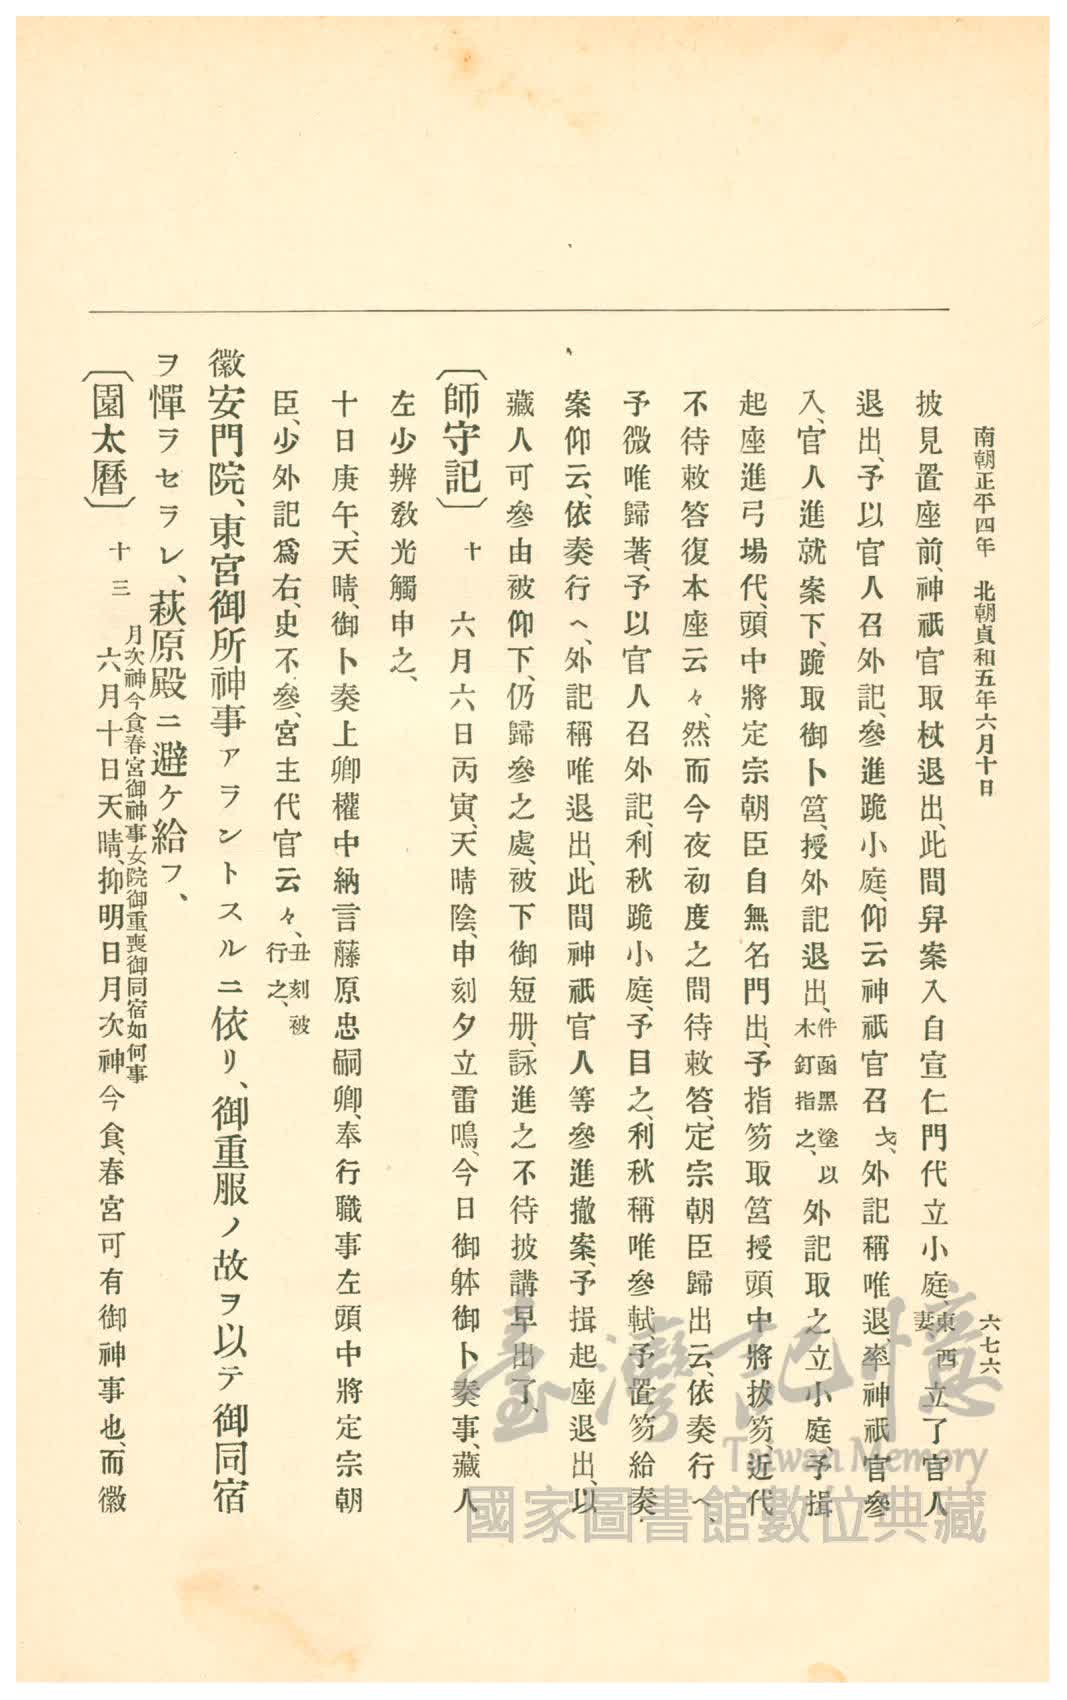 南朝正平四年　北朝貞和五年六月十日
六七六
披見置座前、神祇官取杖退出、此間舁案入自宣仁門代立小庭、東西妻立了官人
退出、予以官人召外記、參進跪小庭、仰云神祇官召、外記稱唯退、率神祇官參
入、官人進就案下、跪取御卜筥、授外記退出、件函黑塗以木釘指之、外記取之立小庭、予揖
起座進弓場代、頭中將定宗朝臣自無名門出、予指笏取筥授頭、中將拔笏近代
不待敕答復本座云々、然而今夜初度之間待敕答、定宗朝臣歸出云、依奏行ヘ、
予微唯歸著、予以官人召外記、利秋跪小庭、予目之、利秋稱唯參軾、予置笏給奏、
案仰云、依奏行ヘ、外記稱唯退出、此間神祇官人等參進撤案、予揖起座退出、以
藏人可參由被仰下、仍歸參之處、被下御短册、詠進之不待披講早出了、
〔師守記〕　十　六月六日丙寅、天晴陰、申刻夕立雷鳴、今日御躰御卜奏事、藏人
左少辨敎光觸申之、
十日庚午、天晴、御卜奏上卿權中納言藤原忠嗣卿、奉行職事左頭中將定宗朝
臣、少外記爲右、史不參、宮主代官云々、丑刻被行之、
徽安門院、東宮御所神事アラントスルニ依リ、御重服ノ故ヲ以テ御同宿
ヲ憚ラセラレ、萩原殿ニ避ケ給フ、
月次神今食春宮御神事女院御重喪御同宿如何事
〔園太曆〕　十三　六月十日天晴、抑明日月次神今食、春宮可有御神事也、而徽
臺灣記憶
Taiwan Memory
國家圖書館數位典藏